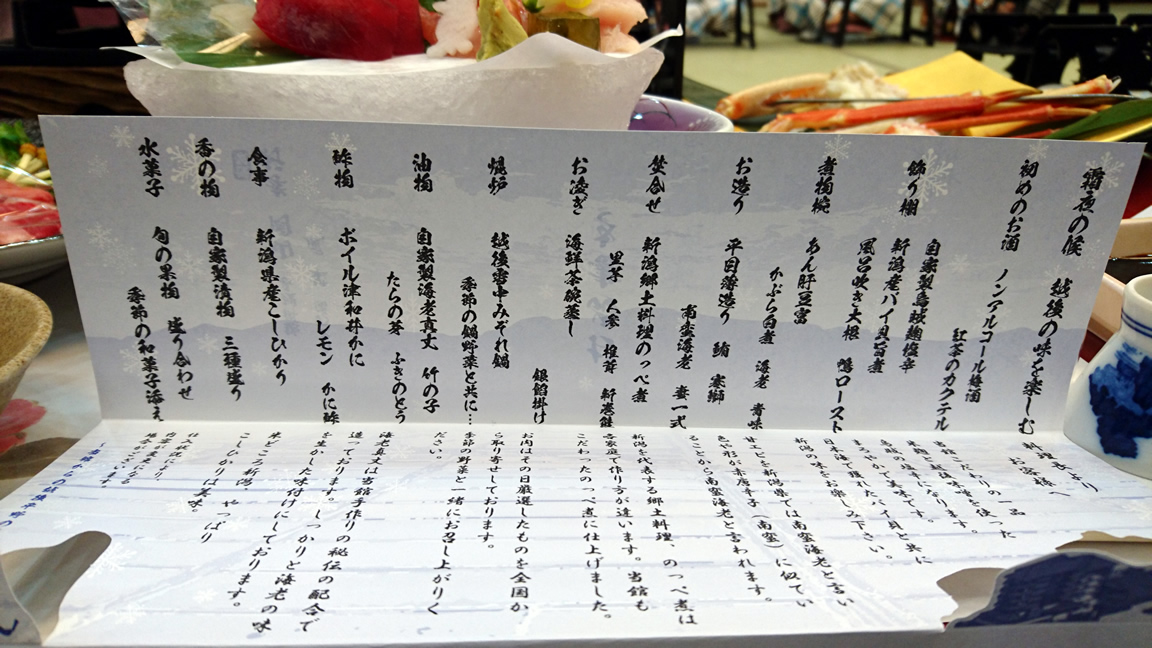 霜夜の候　越後の味を楽しむ
初めのお酒　ノンアルコール梅酒
紅茶のカクテル
飾り棚　自家製烏賊麹塩辛
新潟産バイ貝旨煮
風呂吹き大根　鴨ロースト
煮物椀　あん肝豆富
かぶら白煮　海老　青味
お造り　平目薄造り　鮪　寒鰤
南蛮海老　妻一式
坐合せ　新潟郷土料理のっぺ煮
里芋　人参　椎茸　新巻鮭
お凌ぎ　海鮮茶碗蒸し
銀餡掛け
焜炉　越後雪中みぞれ鍋
季節の鍋野菜と共に…
油物　自家製海老真丈　竹の子
たらの芽　ふきのとう
酢物　ボイル津和井かに
レモン　かに酢
食事　新潟県産こしひかり
香の物　自家製漬物　三種盛り
水菓子　旬の果物　盛り合わせ
季節の和菓子添え
料理長より
お客様へ
当館こだわりの一品
米麹と越後味噌を使った
烏賊の塩辛になります。
まろやかで美味です。
日本海で獲れたバイ貝と共に
新潟の味をお楽しみ下さい。
甘エビを新潟県では南蛮海老と言い
色や形が赤唐辛子（南蛮）に似てい
ることから南蛮海老と言われます。
新潟を代表する郷土料理、のっぺ煮は
各家庭で作り方が違います。当館も
こだわったのっぺ煮に仕上げました。
お肉はその日厳選したものを全国か
ら取り寄せしております。
季節の野菜と一緒にお召し上がりく
ださい。
海老真丈は当館手作りの秘伝の配合で
造っております。しっかりと海老の味
を生かした味付けにしております。
米どころ新潟、やっぱり
こしひかりは美味。
仕入状況により、
内容が変わたる
場合がございます。